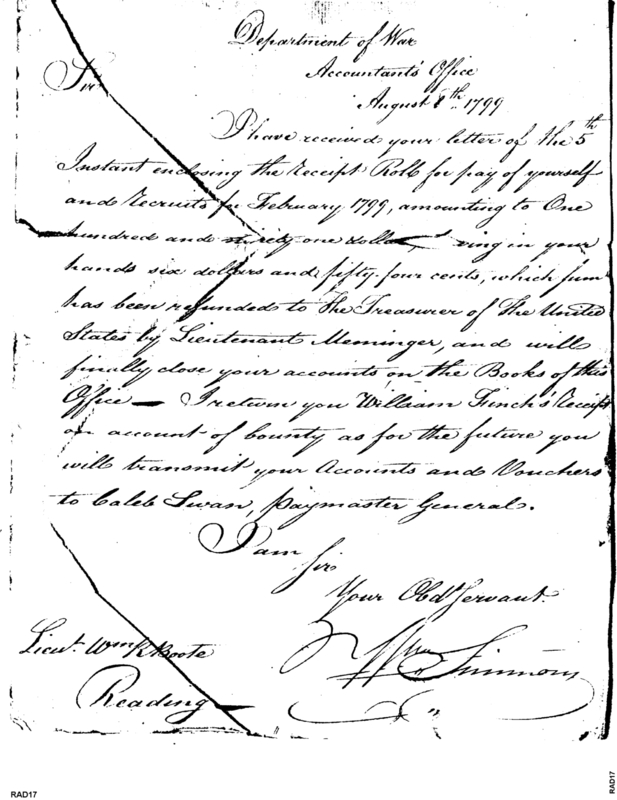 Department of War
Accountant's Office
August 8th. 1799
Sir
I have received your letter of the 5th
Instant enclosing the Receipt Rolls for pay of yourself
and Recruits for February 1799, amounting to One
hundred and one dollars, in your
hands six dollars and fifty-four cents, which sum
has been refunded to the Treasurer of the United
States by Lieutenant Meminger, and will
finally close your accounts, on the Books of this
Office — I return you William Finch's Receipt
on account of bounty as for the future you
will transmit your Accounts and Vouchers
to Caleb Swan, Paymaster General.
I am
Sir
Your Obdt. Servant.
Wm Simmons
Lieut. Wm K Boote
Reading —
RAD17
RAD17